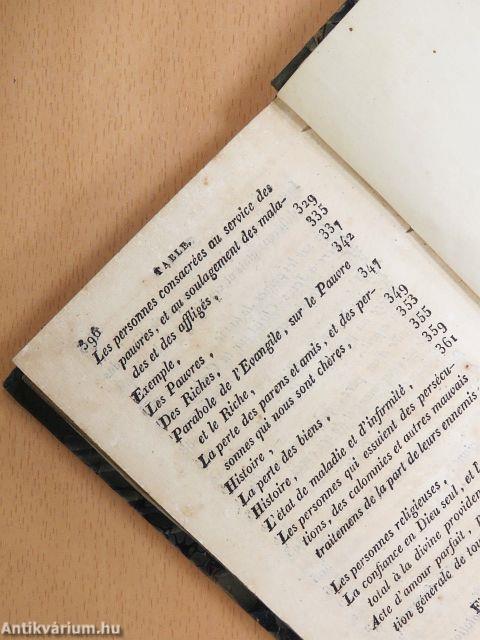 396
TABLE.
Les personnes consacrées au service des
pauvres, et au soulagement des mala-
des et des affligés, 329
Exemple, 335
Les Pauvres, 337
Des Riches, 342
Parabole de l'Evangile, sur le Pauvre
et le Riche, 347
La perte des parens et amis, et des per-
sonnes qui nous sont chères, 349
Histoire, 353
La perte des biens, 355
Histoire, 359
L'état de maladie et d'infirmité, 361
Les personnes qui essuient des persécu-
tions, des calomnies et autres mauvais
traitemens de la part de leurs ennemis,
Les personnes religieuses,
La confiance en Dieu seul, et l
total à la divine providen
Acte d'amour parfait,
tion générale de tou
F
Antikvárium.hu